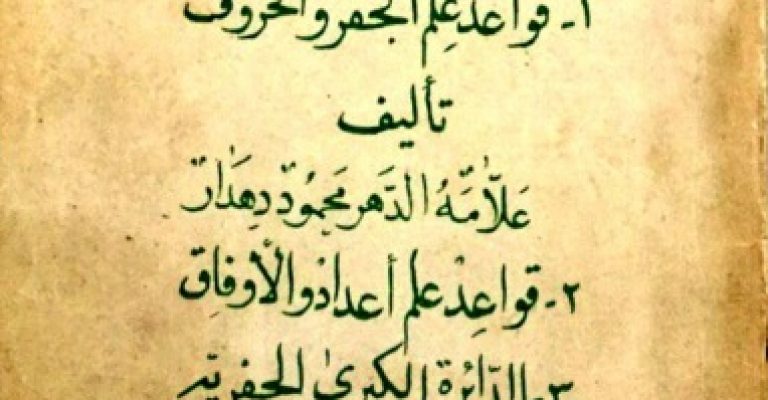 ١- قواعد علم الجفر والحروف
تأليف
علّامه الدّهر محمود دهدار
٢- قواعد علم أعداد و الأوفاق
٣- الدّائرة الكبرىٰ الجفریّه